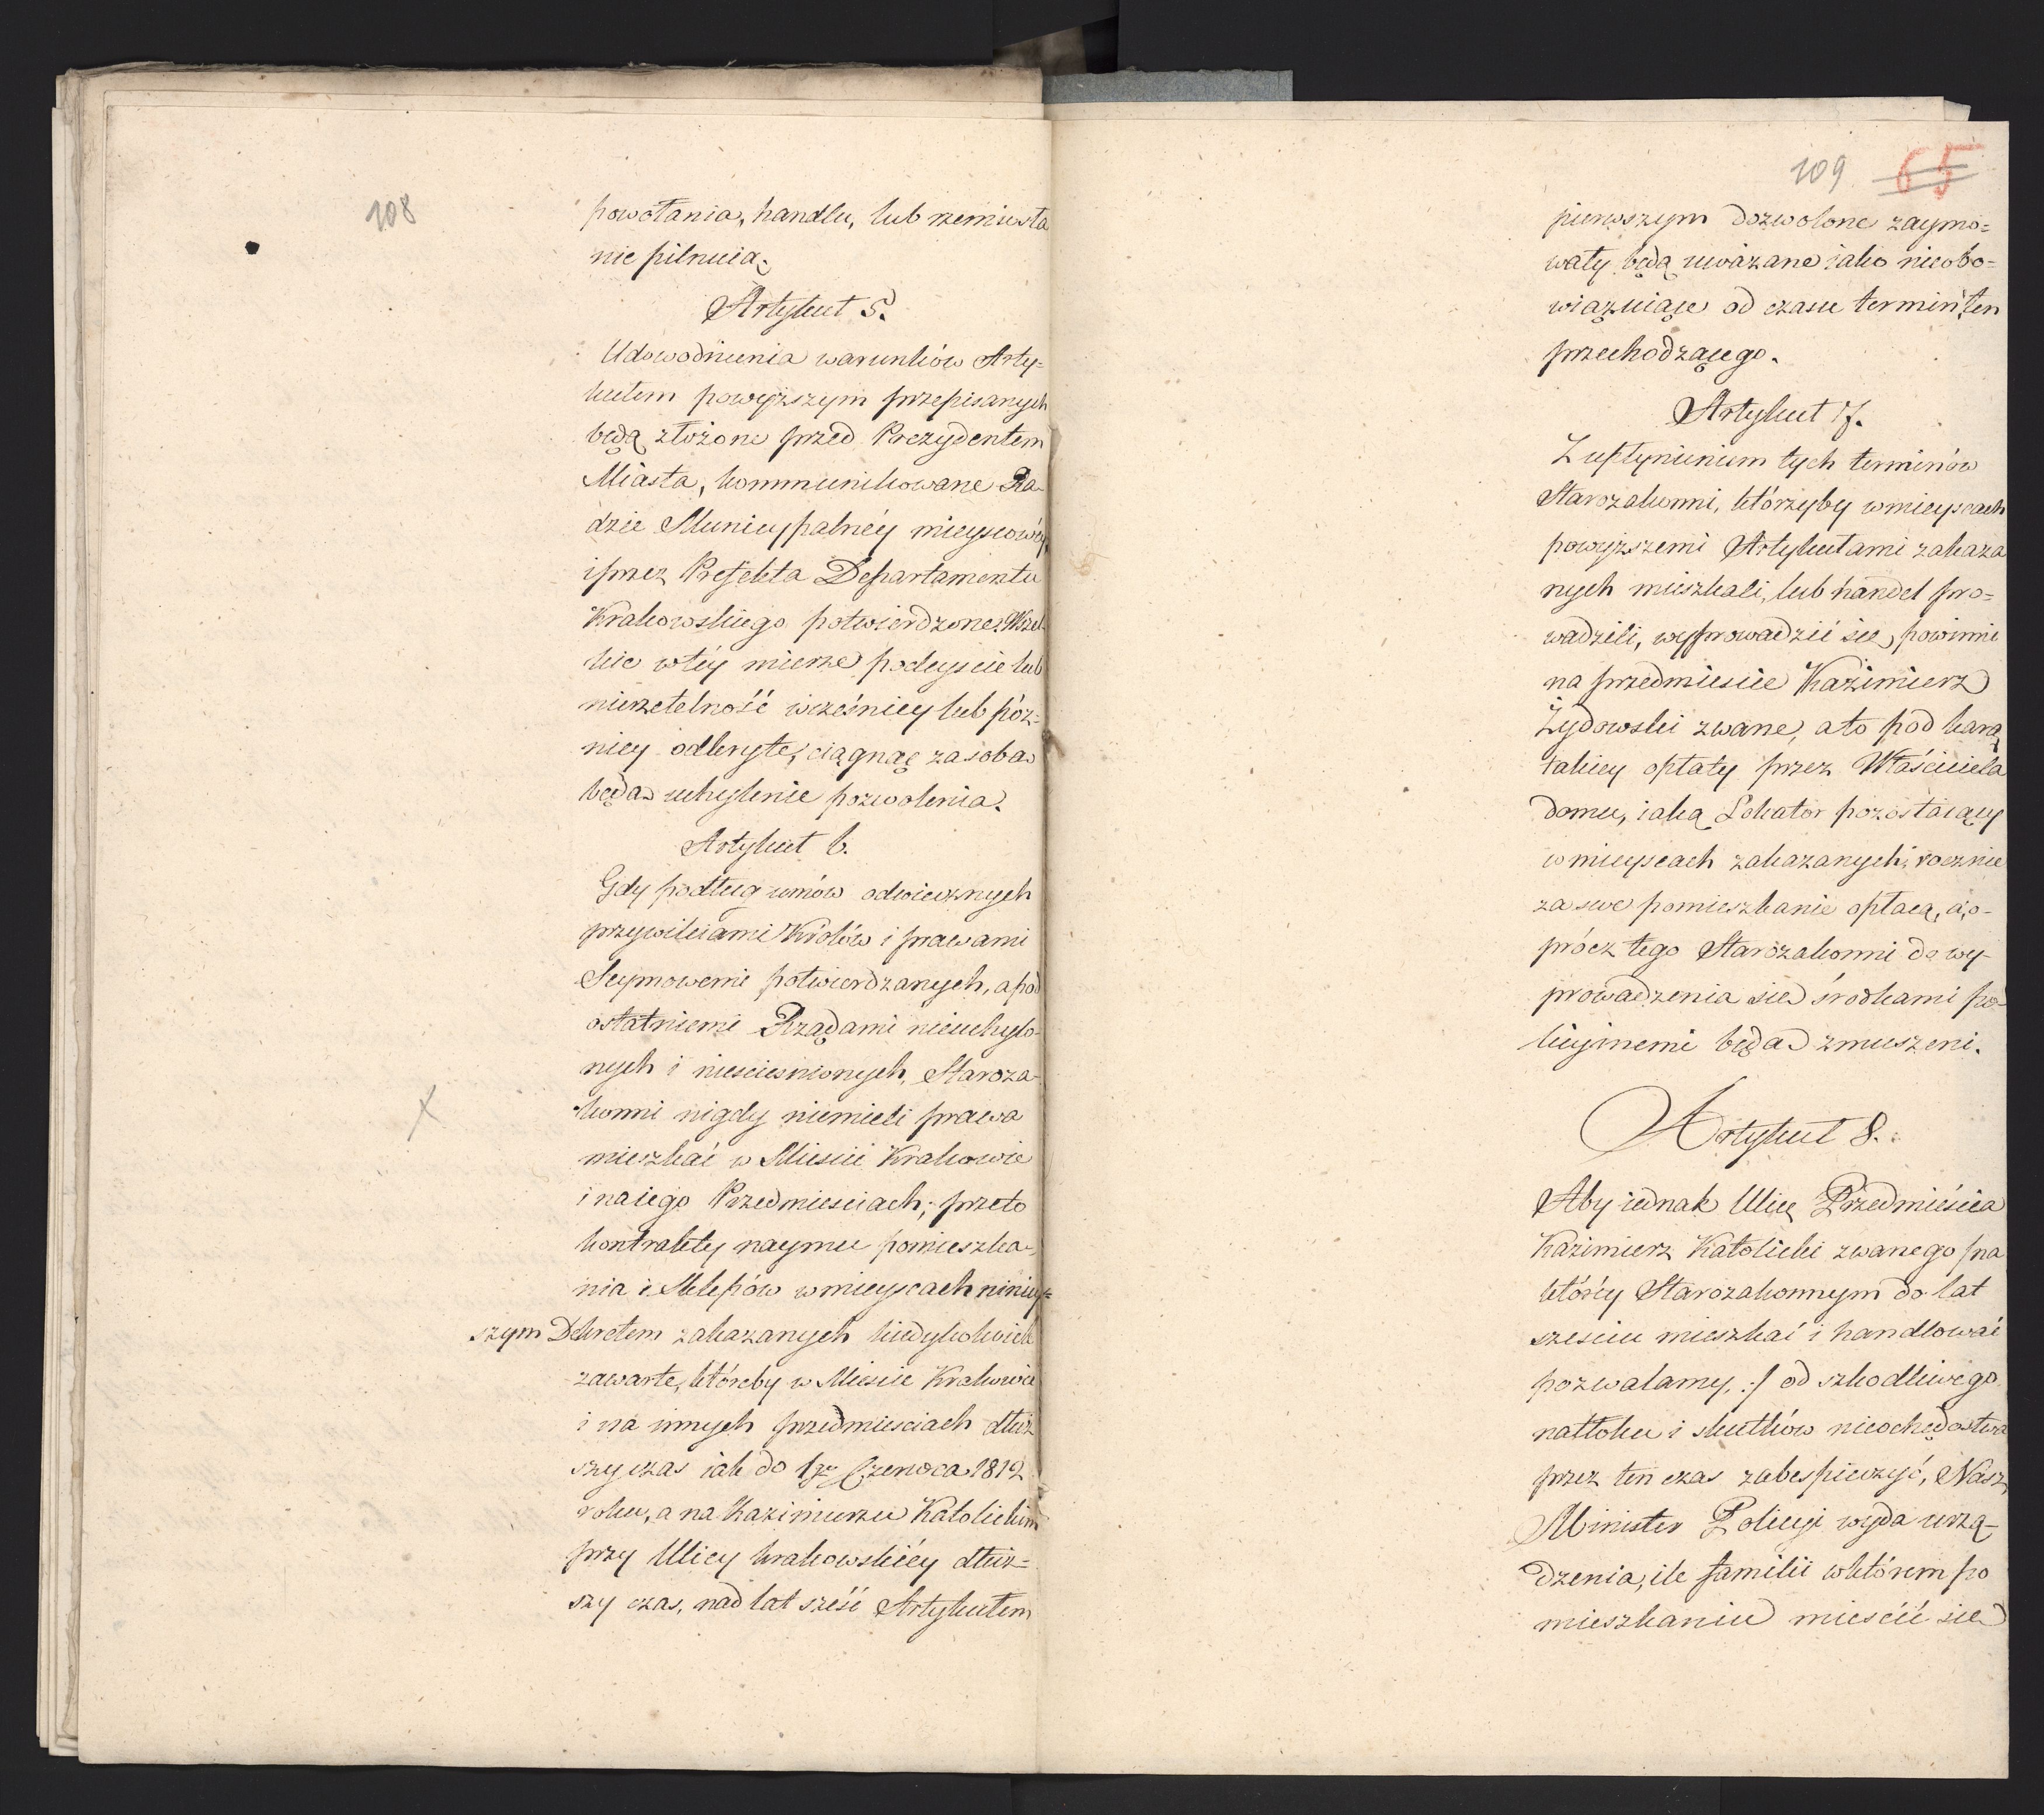 108
powołania, handlu, lub rzemiosła
nie pilnuią.
Artykuł 5.
Udowodnienia warunków Arty-
kułem powyższym przepisanych
będą złożone przed Prezydentem
Miasta, kommunikowane Ra-
dzie Municypalnéy mieyscowéy,
i przez Prefekta Departamentu
Krakowskiego potwierdzone. Wszel-
kie w téy mierze podeyscie lub
nierzetelność wcześniey lub póz-
niey odkryte, ciągnąć za sobą
będą uchylenie pozwolenia.
Artykuł 6.
Gdy podług umów odwiecznych
przywileiami Królów i prawami
Seymowemi potwierdzanych, a pod
ostatniemi Rządami nieuchylo-
nych i niescieśnionych, Staroza-
konni nigdy niemieli prawa
mieszkać w Mieście Krakowie
i na iego Przedmieściach; przeto
kontrakty naymu pomieszka-
nia i Sklepów w mieyscach niniey-
szym Dekretem zakazanych kiedykolwiek
zawarte, któreby w Mieście Krakowie
i na innych przedmieściach dłuż
szy czas iak do 1go Czerwca 1812
roku, a na Kazimierzu Katolickim
przy Ulicy krakowskiéy dłuż-
szy czas, nad lat sześć Artykułem
109 65
pierwszym dozwolone zaymo-
wały będą uważane iako nieobo-
wiązuiące od czasu termin ten
przechodzącego.
Artykuł 7.
Z upłynieniem tych terminów
Starozakonni, którzyby w mieyscach
powyższemi Artykułami zakaza
nych mieszkali, lub handel pro-
wadzili, wyprowadzić się powinni
na przedmieście Kaźimierz
Żydowski zwane, a to pod karą
takiey opłaty przez Właściciela
domu, iaką Lokator pozostaiący
w mieyscach zakazanych, rocznie
za swe pomieszkanie opłaca, a o-
prócz tego Starozakonni do wy-
prowadzenia się środkami po-
licyinemi będą zmuszeni.
Artykuł 8.
Aby iednak Ulicę Przedmieścia
Kazimierz Katolicki zwanego /na
któréy Starozakonnym do lat
sześciu mieszkać i handlować
pozwalamy, :/ od szkodliwego
natłoku i skutków nieochędostwa
przez ten czas zabespieczyć, Nasz
Minister Policyi wyda urzą-
dzenia, ile familii w którem po
mieszkaniu mieścić się